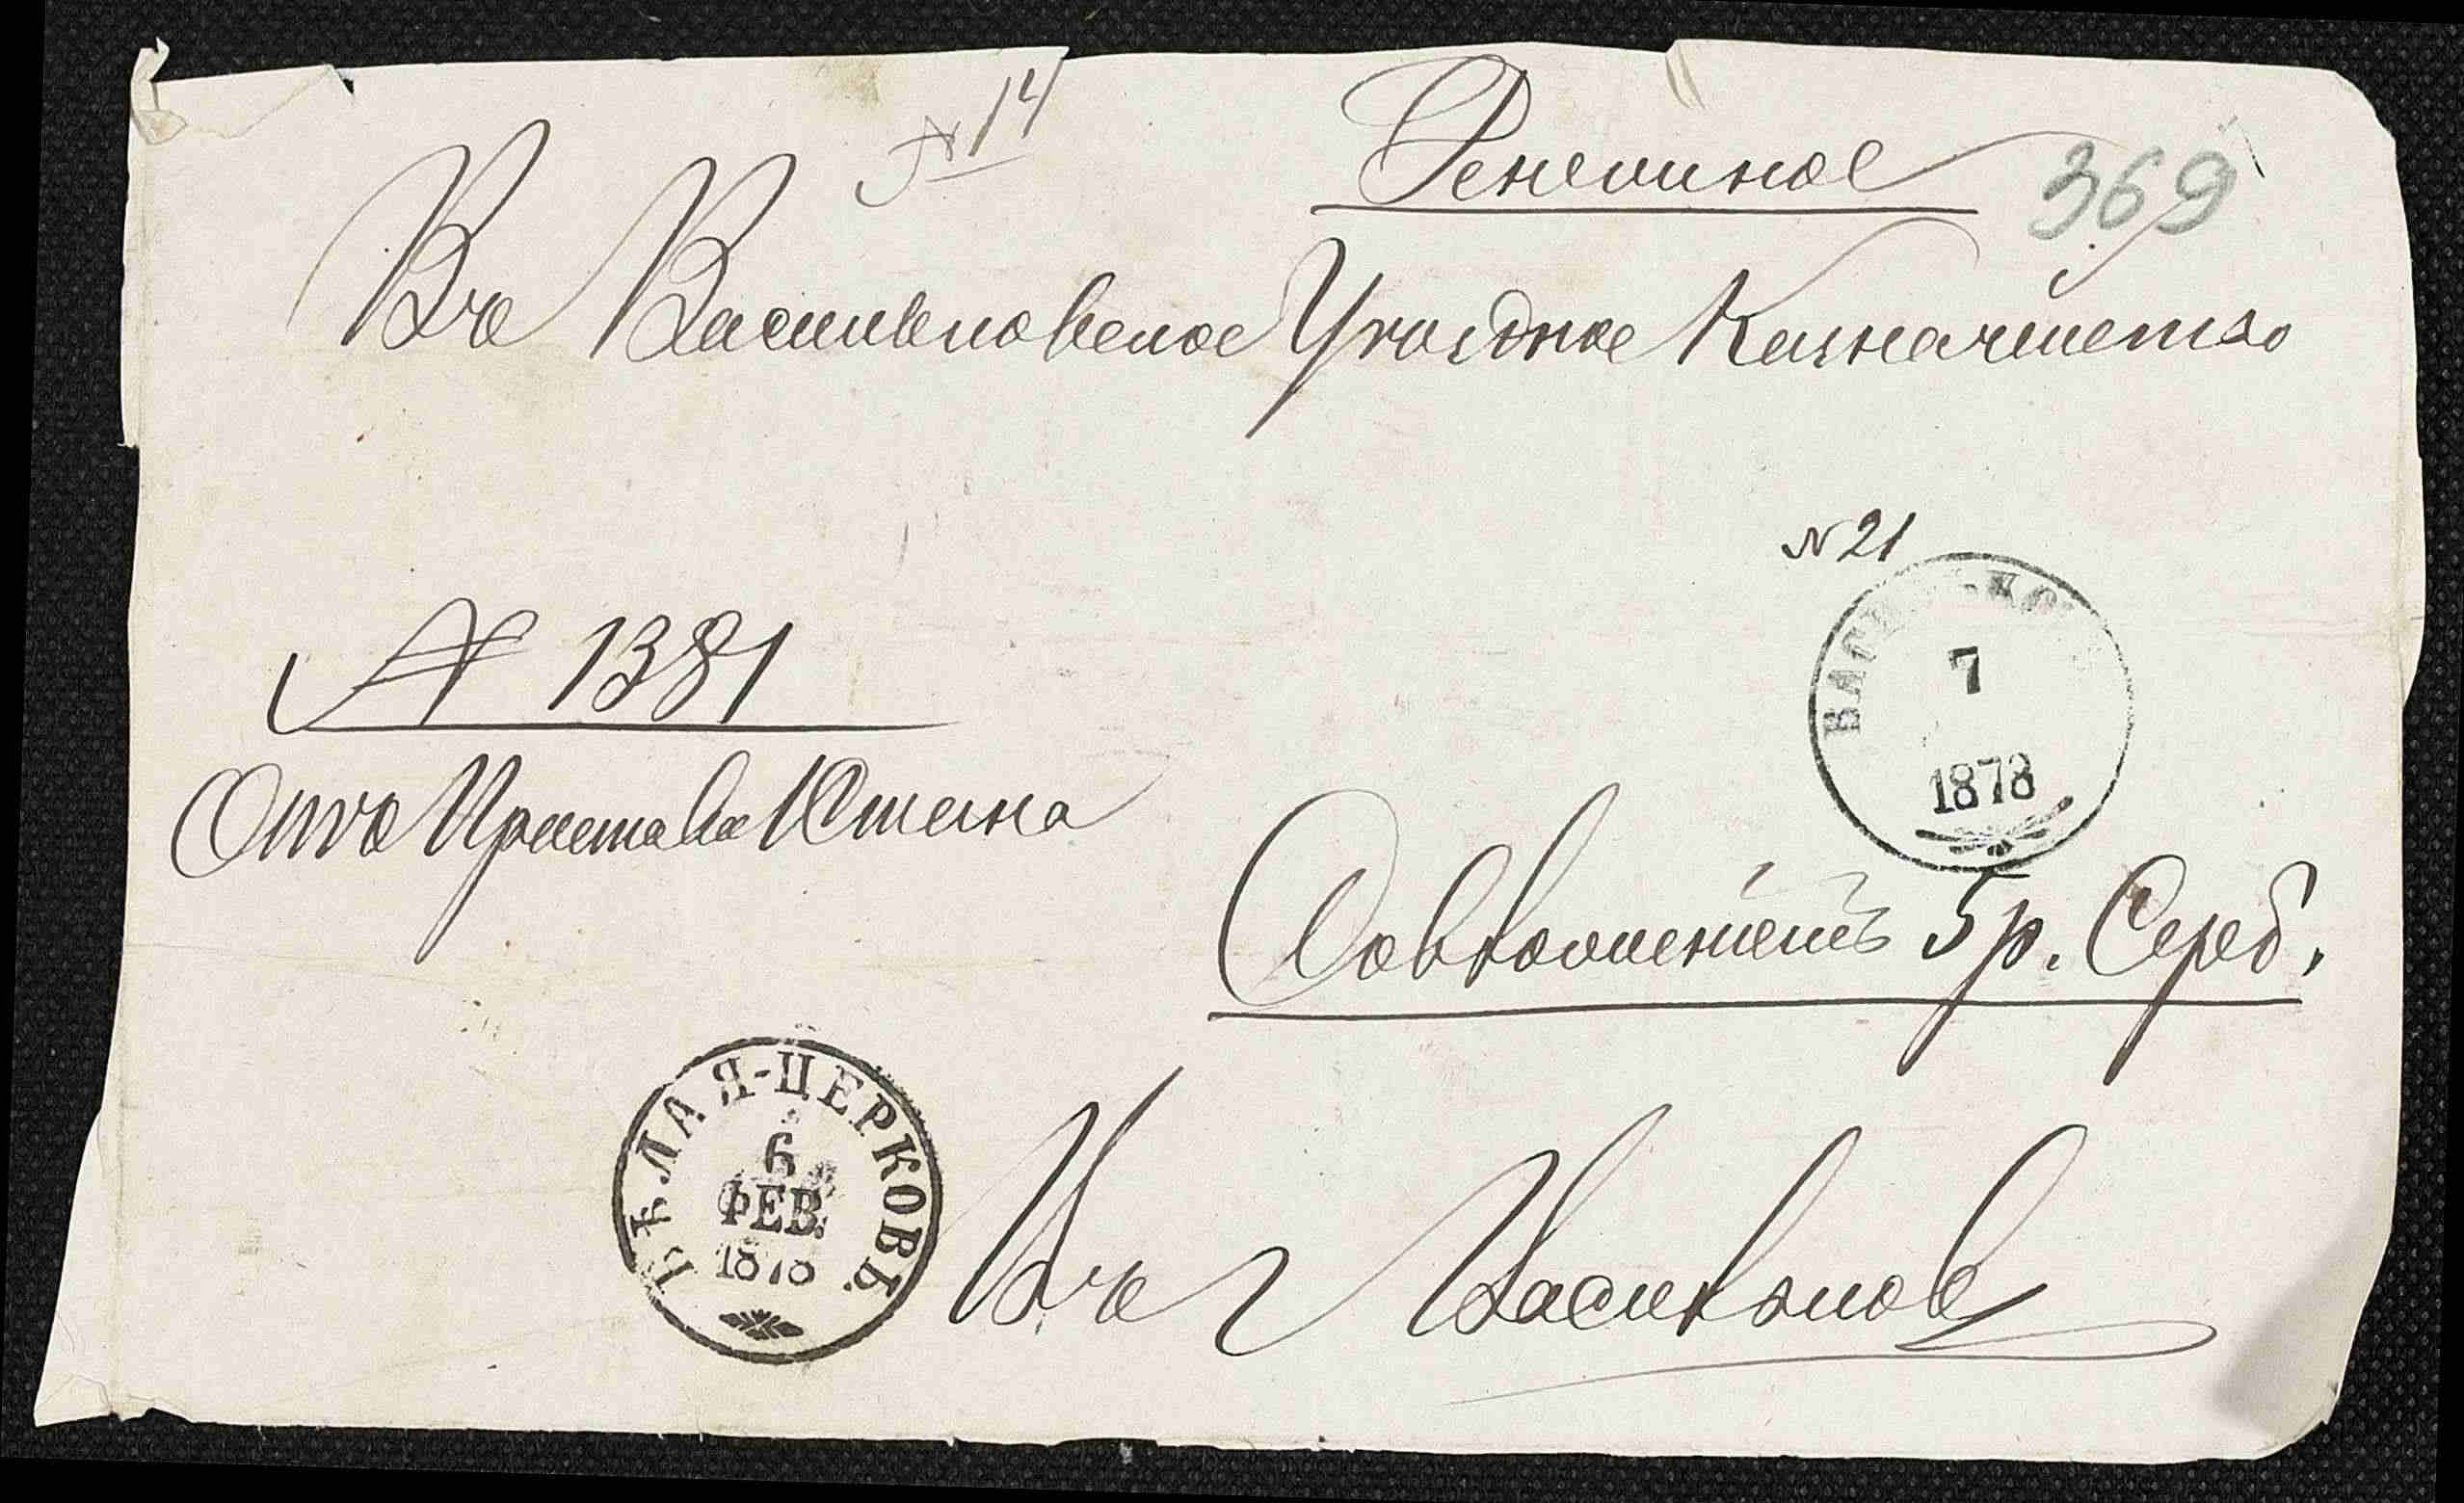 № 14
Денежное
369
Въ Васильковское Уѣздное Казначейство
№ 21
ВАСИЛЬКОВЪ
7
1878
№ 1381
Отъ Пристава 1 Стана
Со вложеніемъ 5 р. Сереб.
БѢЛАЯ-ЦЕРКОВЬ
6
ФЕВ.
1878
Въ г Васильков